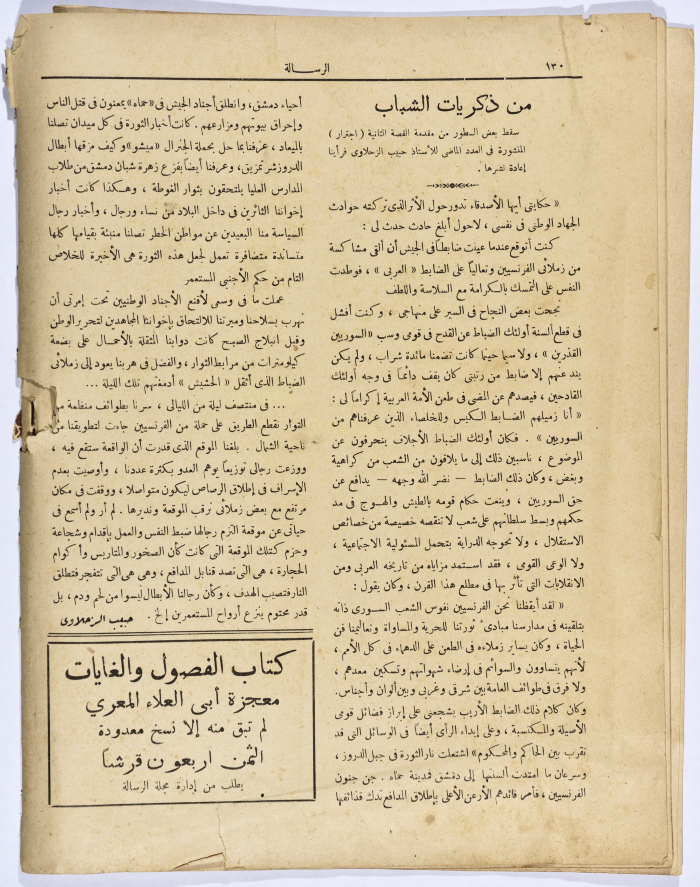 ١٣٠
الرسالة
من ذكريات الشباب
سقط بعض السطور من مقدمة القصة الثانية ( اجترار )
المنشورة في العدد الماضي للأستاذ حبيب الزحلاوي فرأينا
إعادة نشرها .
« حكايتي أيها الأصدقاء تدور حول الأثر الذي تركته حوادث
الجهاد الوطني في نفسي ، لاحول أبلغ حادث حدث لي :
كنت أتوقع عندما عينت ضابطا في الجيش أن ألقى مشاكسة
من زملائي الفرنسيين وتعاليا على الضابط « العربي » ، فوطدت
النفس على التمسك بالكرامة مع السلاسة واللطف
نجحت بعض النجاح في السير على منهاجي ، وكنت أفشل
في قطع ألسنة أولئك الضباط عن القدح في قومي وسب « السوريين
القذرين » ، ولا سيما حينما كانت تضمنا مائدة شراب ، ولم يكن
يندعنهم إلا ضابط من رتبتي كان يقف دائما في وجه أولئك
القادحين ، فيصدهم عن المضي في طعن الأمة العربية إكراما لي :
« أنا زميلهم الضابط الكيس وللخلصاء الذين عرفناهم من
السوريين » . فكان أولئك الضباط الأجلاف ينحرفون عن
الموضوع ، ناسبين ذلك إلى ما يلاقون من الشعب من كراهية
وبغض ، وكان ذلك الضابط — نضر الله وجهه — يدافع عن
حق السوريين ، وينعت حكام قومه بالطيش والهوج في مد
حكمهم وبسط سلطانهم على شعب لا تنقصه خصيصة من خصائص
الاستقلال ، ولا تحوجه الدراية بتحمل المسئولية الاجتماعية ،
ولا الوعي القومي ، فقد استمد مزاياه من تاريخه العربي ومن
الانقلابات التي تأثر بها في مطلع هذا القرن ، وكان يقول :
« لقد أيقظنا نحن الفرنسيين نفوس الشعب السوري ذاته
بتلقينه في مدارسنا مبادئ ثورتنا للحرية والمساواة وتعاليمنا فن
الحياة ، وكان يساير زملاءه في الطعن على الدهماء في كل الأمم ،
لأنهم يتساوون والسوائم في إرضاء شهواتهم وتسكين معدهم ،
ولا فرق في طوائف العامة بين شرقي وغربي وبين ألوان وأجناس.
وكان كلام ذلك الضابط الأريب يشجعني على إبراز فضائل قومي
الأصيلة والمكتسبة ، وعلى إبداء الرأي أيضا في الوسائل التي قد
تقرب بين الحاكم والمحكوم » اشتعلت نار الثورة في جبل الدروز ،
وسرعان ما امتدت ألسنتها إلى دمشق فمدينة حماه . جن جنون
الفرنسيين ، فأمر قائدهم الأرعن الأعلى بإطلاق المدافع تدك قذائفها
أحياء دمشق، وانطلق أجناد الجيش في «حماه» يمعنون في قتل الناس
وإحراق بيوتهم ومزارعهم . كانت أخبار الثورة في كل ميدان تصلنا
بالميعاد ، عرفنا بما حل بحملة الجنرال «ميشو» وكيف مزقها أبطال
الدروز شر تمزيق، وعرفنا أيضا بفزع زهرة شبان دمشق من طلاب
المدارس العليا يلتحقون بثوار الغوطة ، وهكذا كانت أخبار
إخواننا الثائرين في داخل البلاد من نساء ورجال ، وأخبار رجال
السياسة منا البعيدين عن مواطن الخطر تصلنا منبئة بقيامها كلها
متساندة متضافرة تعمل لجعل هذه الثورة هي الأخيرة للخلاص
التام من حكم الأجنبي المستعمر
عملت ما في وسعي لأقنع الأجناد الوطنيين تحت إمرتي أن
نهرب بسلاحنا وميرتنا للالتحاق بإخواننا المجاهدين لتحرير الوطن
وقبل انبلاج الصبح كانت دوابنا المثقلة بالأحمال على بضعة
كيلومترات من مرابط الثوار ، والفضل في هربنا يعود إلى زملائي
الضباط الذي أثقل « الحشيش » أدمغتهم تلك الليلة ...
... في منتصف ليلة من الليالي ، سرنا بطوائف منظمة من
الثوار نقطع الطريق على حملة من الفرنسيين جاءت لتطويقنا من
ناحية الشمال . بلغنا الموقع الذي قدرت أن الواقعة ستقع فيه ،
ووزعت رجالي توزيعا يوهم العدو بكثرة عددنا ، وأوصيت بعدم
الإسراف في إطلاق الرصاص ليكون متواصلا ، ووقفت في مكان
مرتفع مع بعض زملائي نرقب الموقعة ونديرها . لم أر ولم أسمع في
حياتي عن موقعة التزم رجالها ضبط النفس والعمل بإقدام وشجاعة
وحزم كتلك الموقعة التي كانت كأن الصخور والمتاريس وأكوام
الحجارة ، هي التي تصد قنابل المدافع ، وهي هي التي تتفجر فتطلق
النار فتصيب الهدف ، وكأن رجالنا الأبطال ليسوا من لحم ودم ، بل
قدر محتوم ينزع أرواح المستعمرين إلخ .
حبيب الزحلاوي
كتاب الفصول والغايات
معجزة أبي العلاء المعري
لم تبق منه إلا نسخ معدودة
الثمن اربعون قرشا
يطلب من إدارة مجلة الرسالة